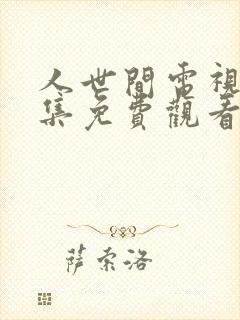 人世間電視
集免費觀看
薩索洛